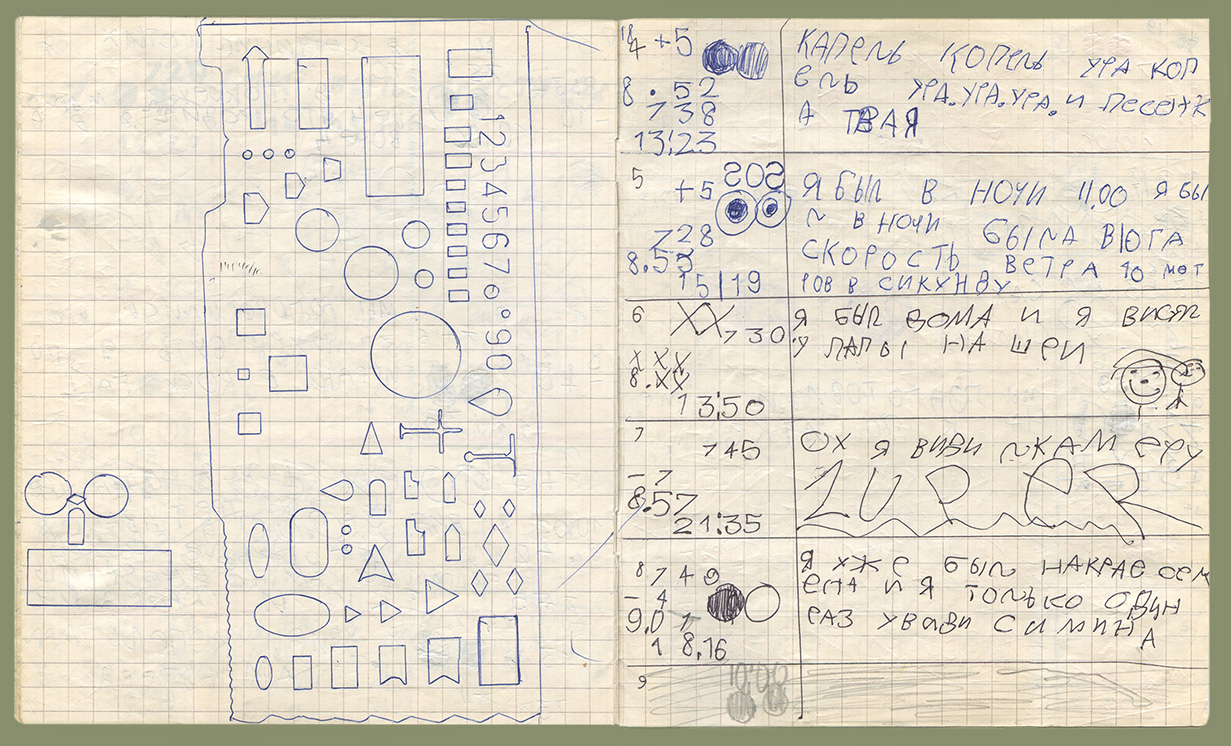 1234567890
4 +5
8.52
738
13:23
КАПЕЛЬ КОПЕЛЬ УРА КОП
ЕЛЬ УРА.УРА.УРА. И ПЕСЕНК
А ТВАЯ
5
+5 SOS
728
8.55
15|19
Я БЫЛ В НОЧИ 11,00 Я БЫ
Л В НОЧИ БЫЛА ВЮГА
СКОРОСТЬ ВЕТРА 10 МЕТ
РОВ В СИКУНДУ
6
730
XXX
8.XX
13:50
Я БЫЛ ДОМА И Я ВИСЯЛ
У ПАПЫ НА ШЕИ
7
745
-7
8.57
21:35
ОХ Я ВИДИЛ КАМЕРУ
ZUPER
8 749
-4
9.01
18,16
Я УЖЕ БЫЛ НА
И Я ТОЛЬКО ОДИН
РАЗ УВИДИ СИМИНА
9
10:00